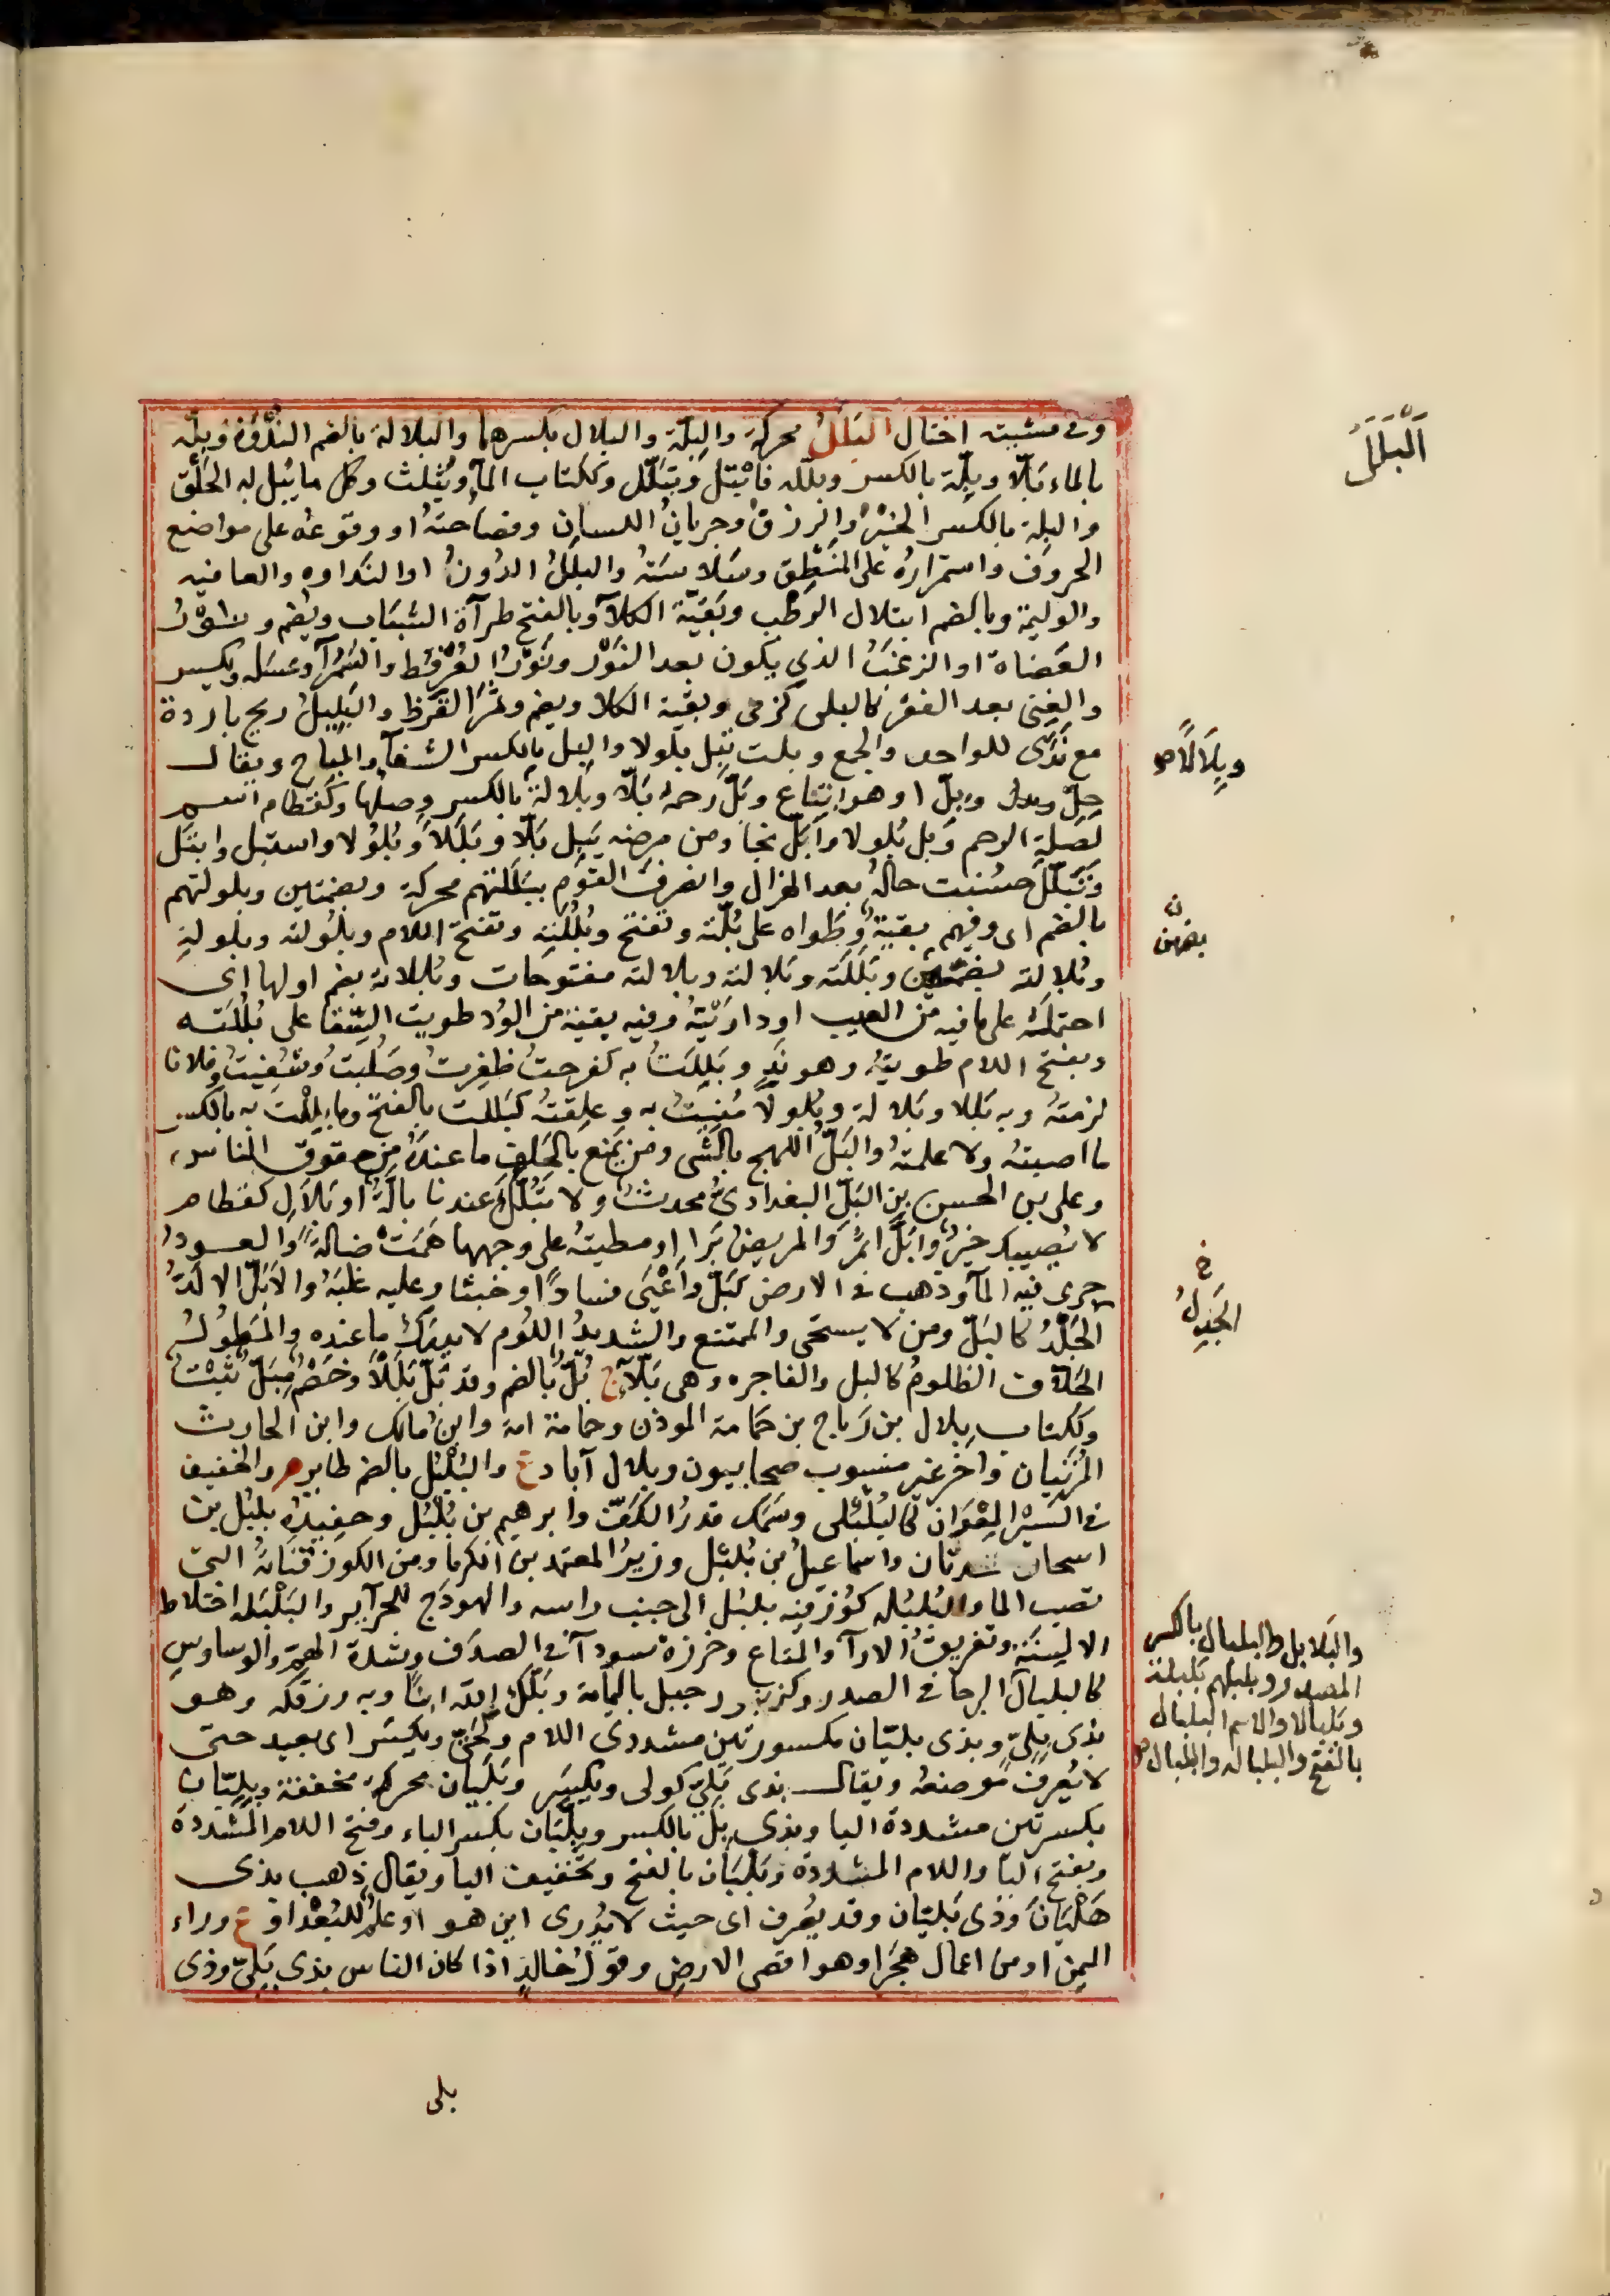 وفى مشيته اختال البَلَلُ محركة والبِلّة والبلال بكسرهما والبلالة بالضم النُّدْوَة وبلّه
بالماء بَلّا وبِلّة بالكسر وبلّله فابْتل وتبَلّل وككتاب المآ ويُثلث وكل ما يُبل به الحَلْق
والبلة بالكسر الخيرُ والرزق وجريانُ اللسان وفصاحتهُ او وقوعهُ على مواضع
الحروف واستمرارهُ على المنْطِق وسَلاسَتهُ والبلَلُ الدُونُ او النداوه والعافيه
والوليمة وبالضم ابتلال الرطْب وبَقيّة الكلآ وبالفتح طرآة الشَبَاب ويُضم ونَوْرُ
العضاة او الزغَبُ الذى يكون بعد النَوْر ونَوْرُ العُرْفُط والسَّمُرآ وعسله ويكسر
والغِنى بعد الفقر كالبلى كزمى وبقية الكلا ويضم وثمَرُ القَرَظ والبَلِيلُ ريح باردة
مع نَدًى للواحد والجمع وبلت تَبِل بلولا والبل بالكسر الشفآ والمباح ويقال
حِلّ وبِلّ او هو اتباع وبَلّ رحمهُ بَلّا وبَلالةً بالكسر وصلها وكقطام اسم
لصلة الرحم وبل بُلولا وابَلّ نجا ومن مرضه يَبِل بَلّا وبَلَلاً وبُلُولا واستبل وابتَل
وتَبَلّلَ حسُنت حالهُ بعد الهزال وانصرفَ القوْم ببَلَلتهم محركة وبضمتين وبلولتهم
بالضم اى وفيهم بقيةٌ وطواه على بُلّته وتفتح وبُلُلتِه وتفتح اللام وبلُولته وبلوله
وبُلالته بضمهن وبَلَلَته وبَلالته وبلالته مفتوحات وبُللاته بضم اولها اى
احتملتهُ على ما فيه من العيب او داريْتهُ وفيه بقية من الوُد طويت السِّقا على بُلُلَته
وبفتح اللام طويتهُ وهو نَدٍ وبَلِلتُ به كفرحتُ ظفِرتُ وصَلُبتُ وشُفِيتُ وفلانا
لزمتهُ وبه بَللا وبَلالة وبلولا مُنِيتُ به وعلِقتهُ كبَلَلت بالفتح وما بلِلْت به بالكسر
ما اصبتهُ ولا علمتهُ والبَلّ اللهج بالشى ومن يمنع بالحَلِف ما عندهُ من حقوق الناس
وعلى بن الحسن بن البَلّ البغدادىُ محدثٌ ولا تَبُلُّك عندنا بالّةٌ او بَلالِ كقطام
لا يُصيبك خيرٌ وابَلّ اثمَر والمريض برَا او مطيتهُ على وجهها همَت ضالةً والعود
جرى فيه المآ وذهب فى الارض كَبَلّ واَعْيَى فسادًا وخبثا وعليه غلبَهُ والاَبَلّ الالَدُ
الجَلْدُ كالبَلّ ومن لا يستحى والممتنع والشديدُ اللؤم لا يدرَكُ ما عنده والمَطُولُ
الحَلّاف الظلومُ كالبل والفاجره وهى بَلّآ ج بُلّ بالضم وقد بَلّ بَلَلاً وخَصْم مِبَلّ ثَبْتٌ
وككتاب بلال بن رَباح بن حَمامة الموذن وحمامة امه وابن مالك وابن الحارث
المُزنيان وآخر غير منسوب صحابيون وبلال آباد ع والبُلْبُل بالضم طاير م والخفيف
فى السَفر المِعْوَان كالبُلْبُلى وسَمَك قدرُ الكفّ وابرهيم بن بُلبُل وحفيدُه بلبُل بن
اسحاق محدثان واسماعيلُ بن بُلبُل وزيرُ المعتمد من الكرما ومن الكوز قنَاتهُ التى
تصب الما والبُلبُله كوُز فيه بلبُل الى جنب راسه والهودَج للحرآير والبَلْبَله اختلاط
الالسِنَة وتفريقُ الارآ والمتاع وخرزة سودآ فى الصدَف وشدة الهَمّ والوساوس
كالبلبال البرحا فى الصدر وكزبرر وجبل باليمامة وبَلّك الله ابنًا وبه رزقكه وهو
بذى بِلِىّ وبذى بليّان مكسورتين مشددى اللام وكحَتّى ويكسَر اى بعيد حتى
لا يُعرف موضعهُ ويقال بذى بَلِيّ كولى ويكسَر وبَلَيان محركة مخففة وبِلِيّان
بكسرتين مشددة اليا وبذى بِلّ بالكسر وبِلَّيَان بكسر الباء وفتح اللام المشددة
وبفتح البا واللام المشددة وبَلْيَان بالفتح وتخفيف اليا ويقال ذهب بذى
هَلْيَانَ وَذى بَليّان وقد يُصرف اى حيث لا يُدرى اين هو او علمٌ للبُعْد او ع وراء
اليمن او من اعمال هجَر او هو اقصى الارض وقولُ خالد اذا كان الناس بذى بَلِىّ وذى
البَلَلُ
وبِلَالًا صح
ن
بضمهن
خ
الجَدِلُ
والبَلابل والبلبال بالكسر
المصدر وبلبلهم بَلبلة
وبَلبالا والاسم البلبال
بالفتح والبلباله والبلبال صح
بلى